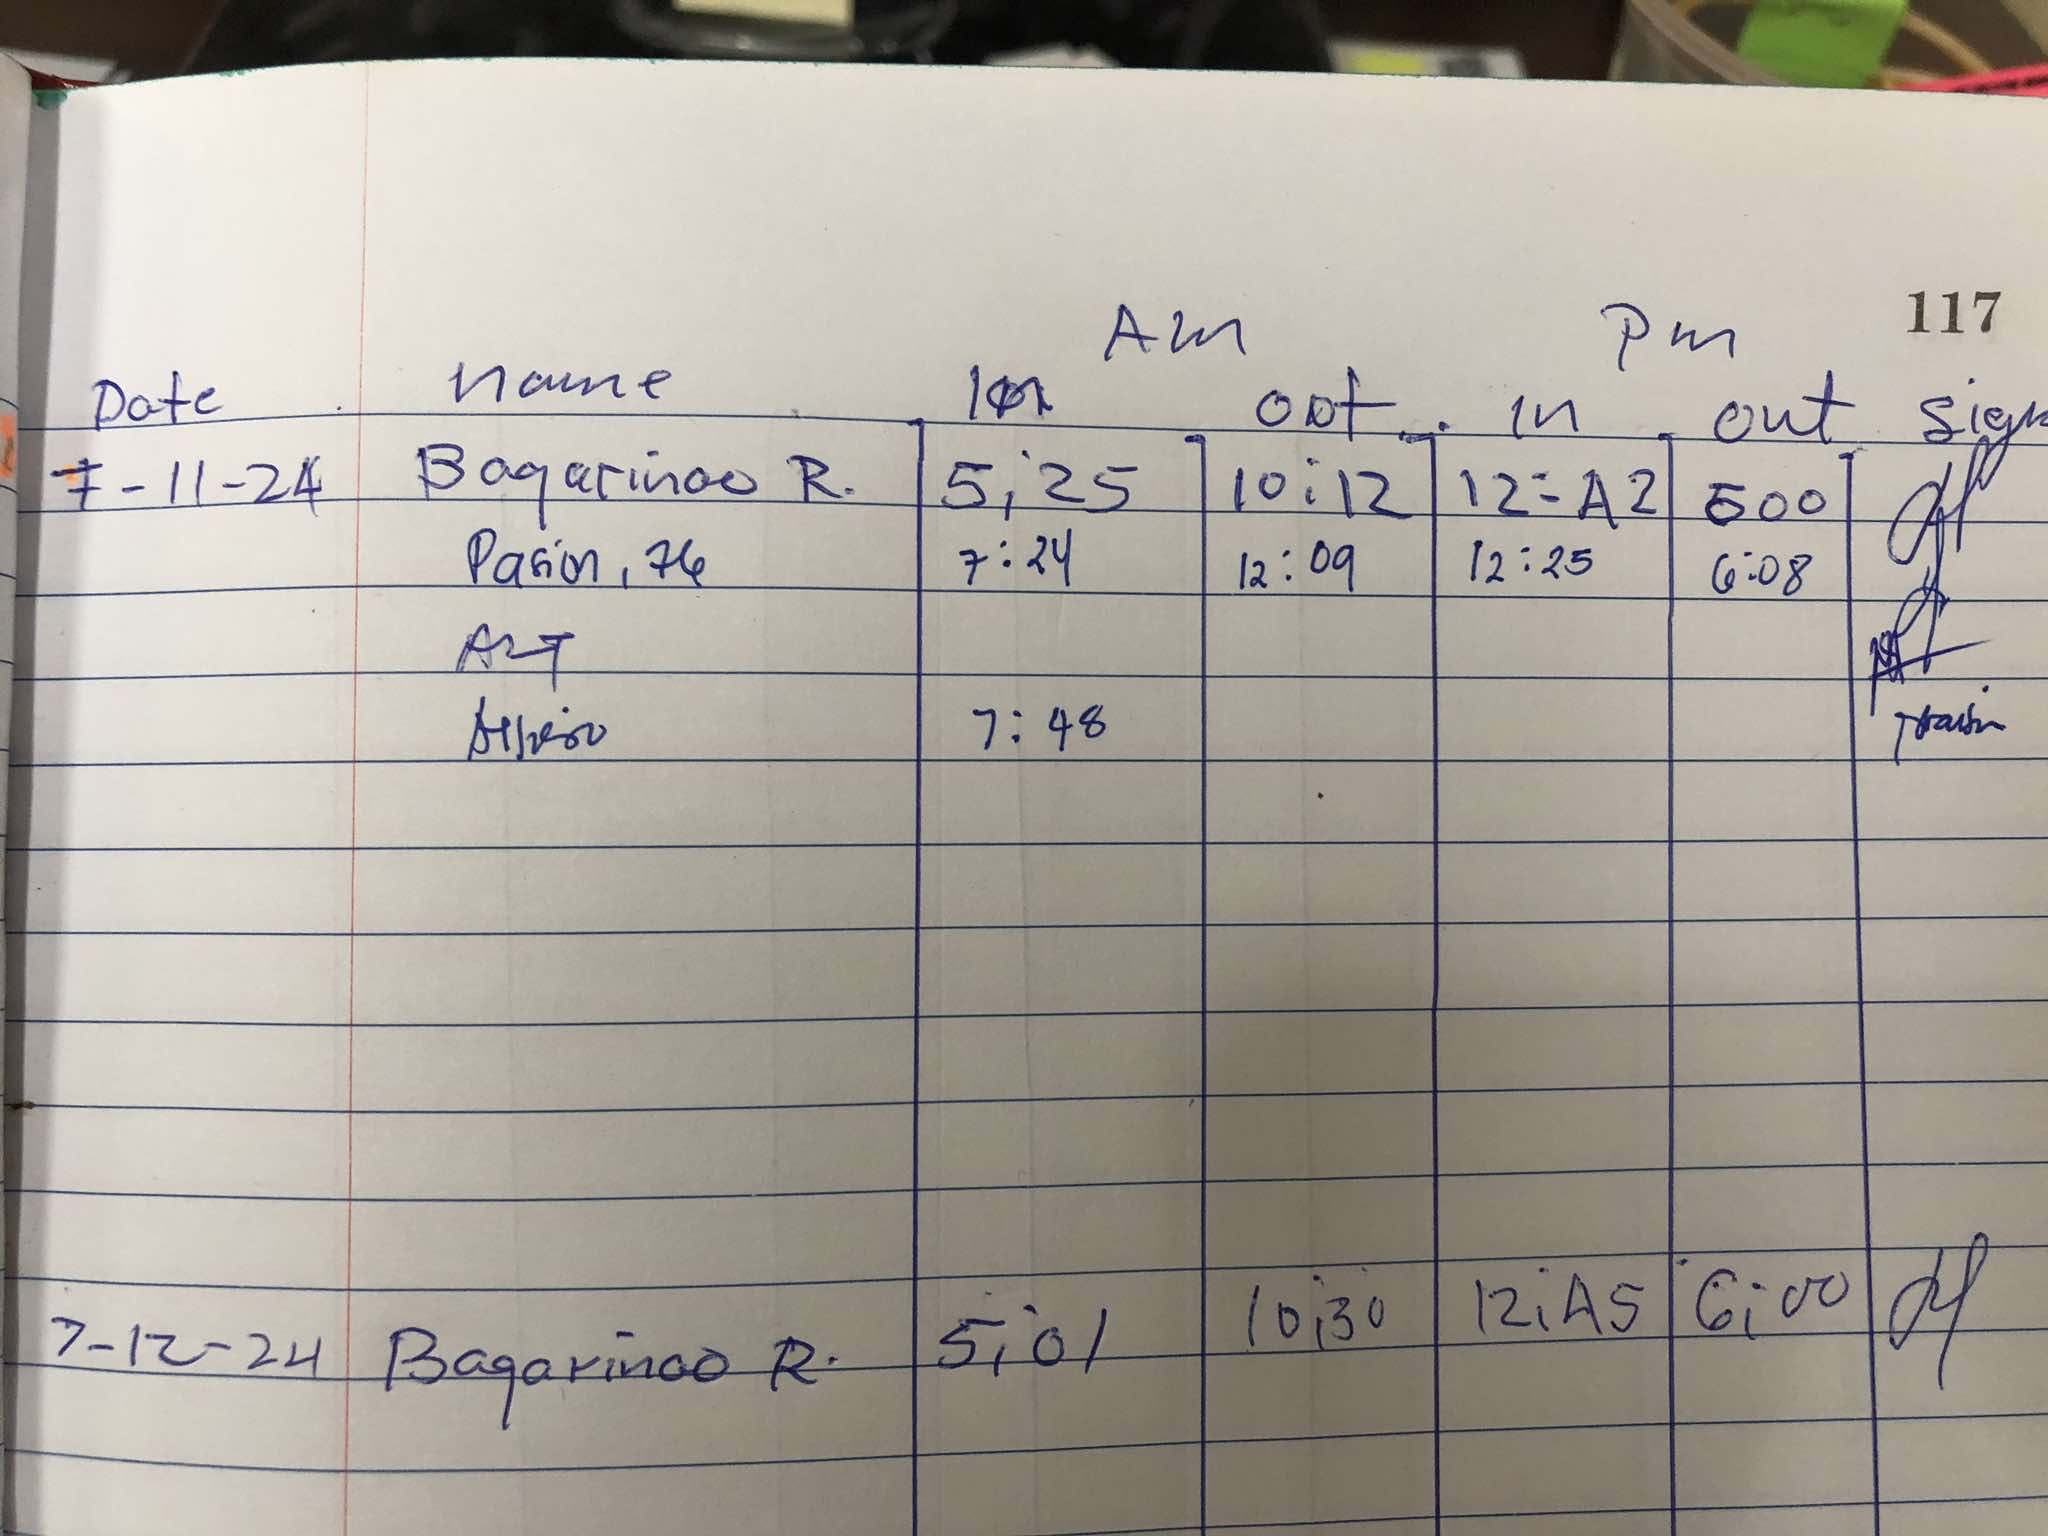 117
Am Pm
Date name In out in out sign
7-11-24 Bagarinao R. 5:25 10:12 12:42 500
Pasion, 76 7:24 12:09 12:25 6:08
7:48
7-12-24 Bagarinao R. 5:01 10:30 12:45 6:00